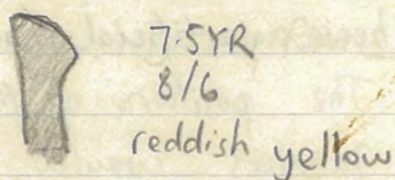 7.5YR
8/6
reddish yellow